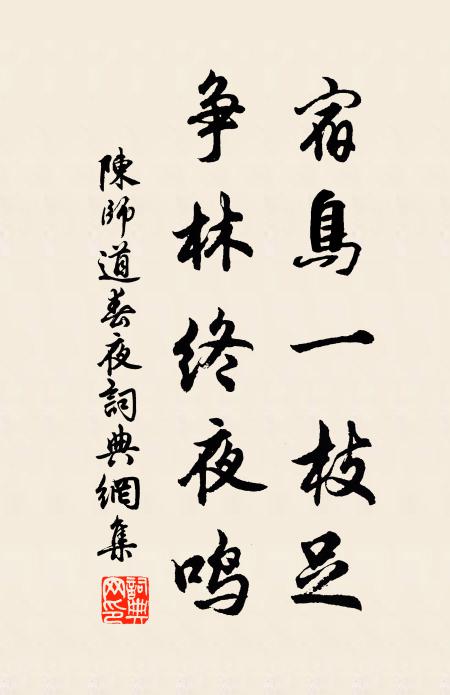 宿鳥一枝足
争林終夜鳴
陳師道春夜詞典網集
詞典網印